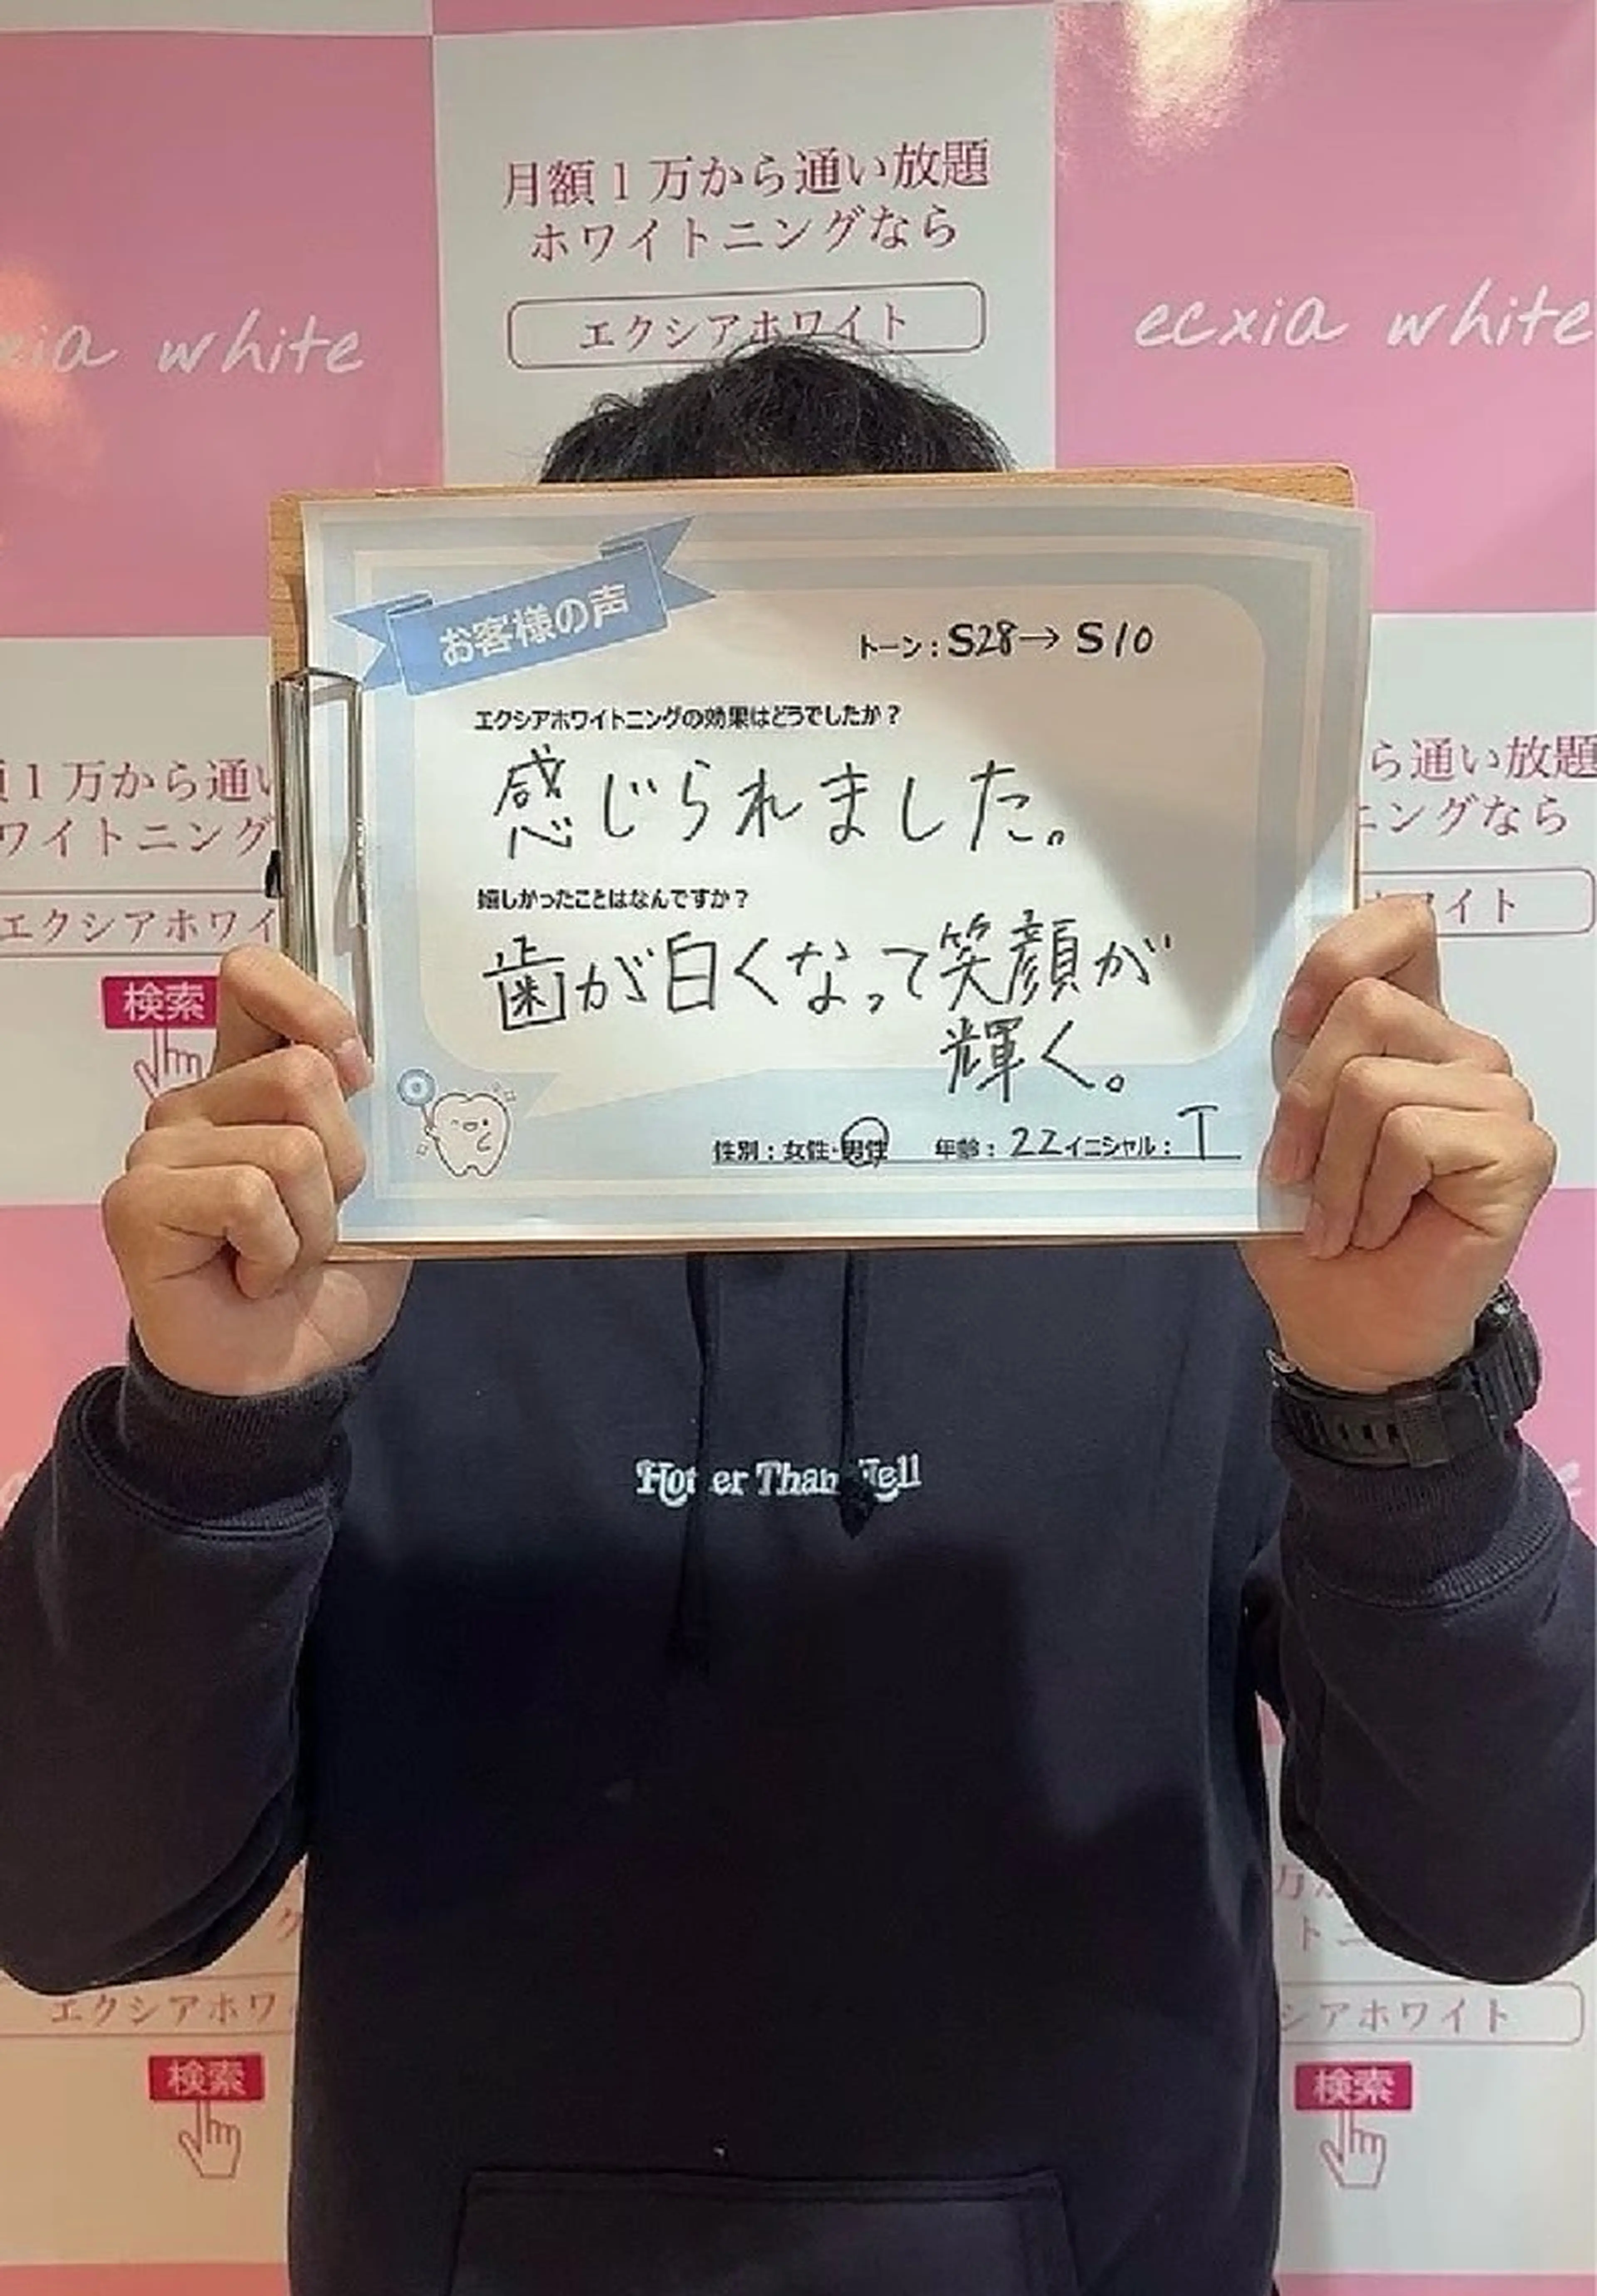 月額１万から通い放題
ホワイトニングなら
エクシアホワイト
xia white
ecxia white
お客様の声
トーン：S28→ S10
エクシアホワイトニングの効果はどうでしたか？
感じられました。
嬉しかったことはなんですか？
歯が白くなって笑顔が
輝く。
性別：女性・男性 年齢：22 イニシャル：T
額１万から通い
ワイトニング
エクシアホワイ
検索
ら通い放題
ニングなら
ホワイト
Hotter Than Hell
エクシアホワイ
検索
万か
トニ
シアホワイト
検索